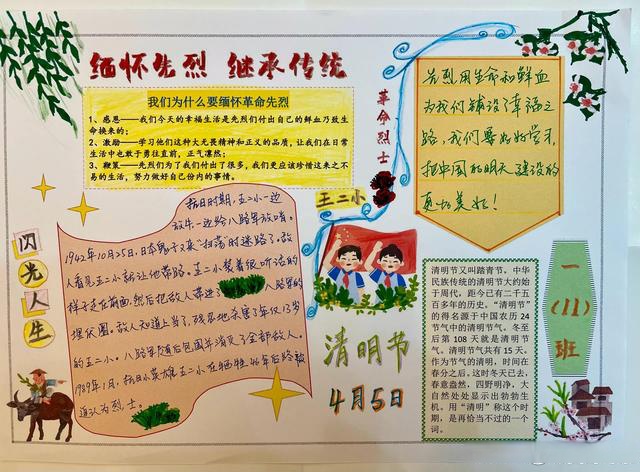 缅怀先烈 继承传统
我们为什么要缅怀革命先烈
1、感恩——我们今天的幸福生活是先烈们付出自己的鲜血乃致生
命换来的；
2、激励——学习他们这种大无畏精神和正义的品质，让我们在日常
生活中也敢于勇往直前，正气凛然；
3、鞭策——先烈们为了我们付出了很多，我们更应该珍惜这来之不
易的生活，努力做好自己份内的事情。
革命烈士
王二小
先烈用生命和鲜血
为我们铺设了幸福之
路，我们要好好学习，
把中国的明天建设的
更加美好！
闪光人生
抗日时期，王二小一边
放牛一边给八路军放哨。
1942年10月25日，日本鬼子又来"扫荡"时迷路了。敌
人看见王二小就让他带路。王二小装着很听话的
样子走在前面，然后把敌人带进了 八路军的
埋伏圈。敌人知道上当了，残忍地杀害了年仅13岁
的王二小。八路军随后包围并消灭了全部敌人。
1989年1月，抗日小英雄王二小在牺牲46年后终被
追认为烈士。
清明节
4月5日
清明节又叫踏青节，中华
民族传统的清明节大约始
于周代，距今已有二千五
百多年的历史。"清明节"
的得名源于中国农历 24
节气中的清明节气。冬至
后第 108 天就是清明节
气。清明节气共有 15 天。
作为节气的清明，时间在
春分之后。这时冬天已去，
春意盎然，四野明净，大
自然处处显示出勃勃生
机。用"清明"称这个时
期，是再恰当不过的一个
词。
一(11)班